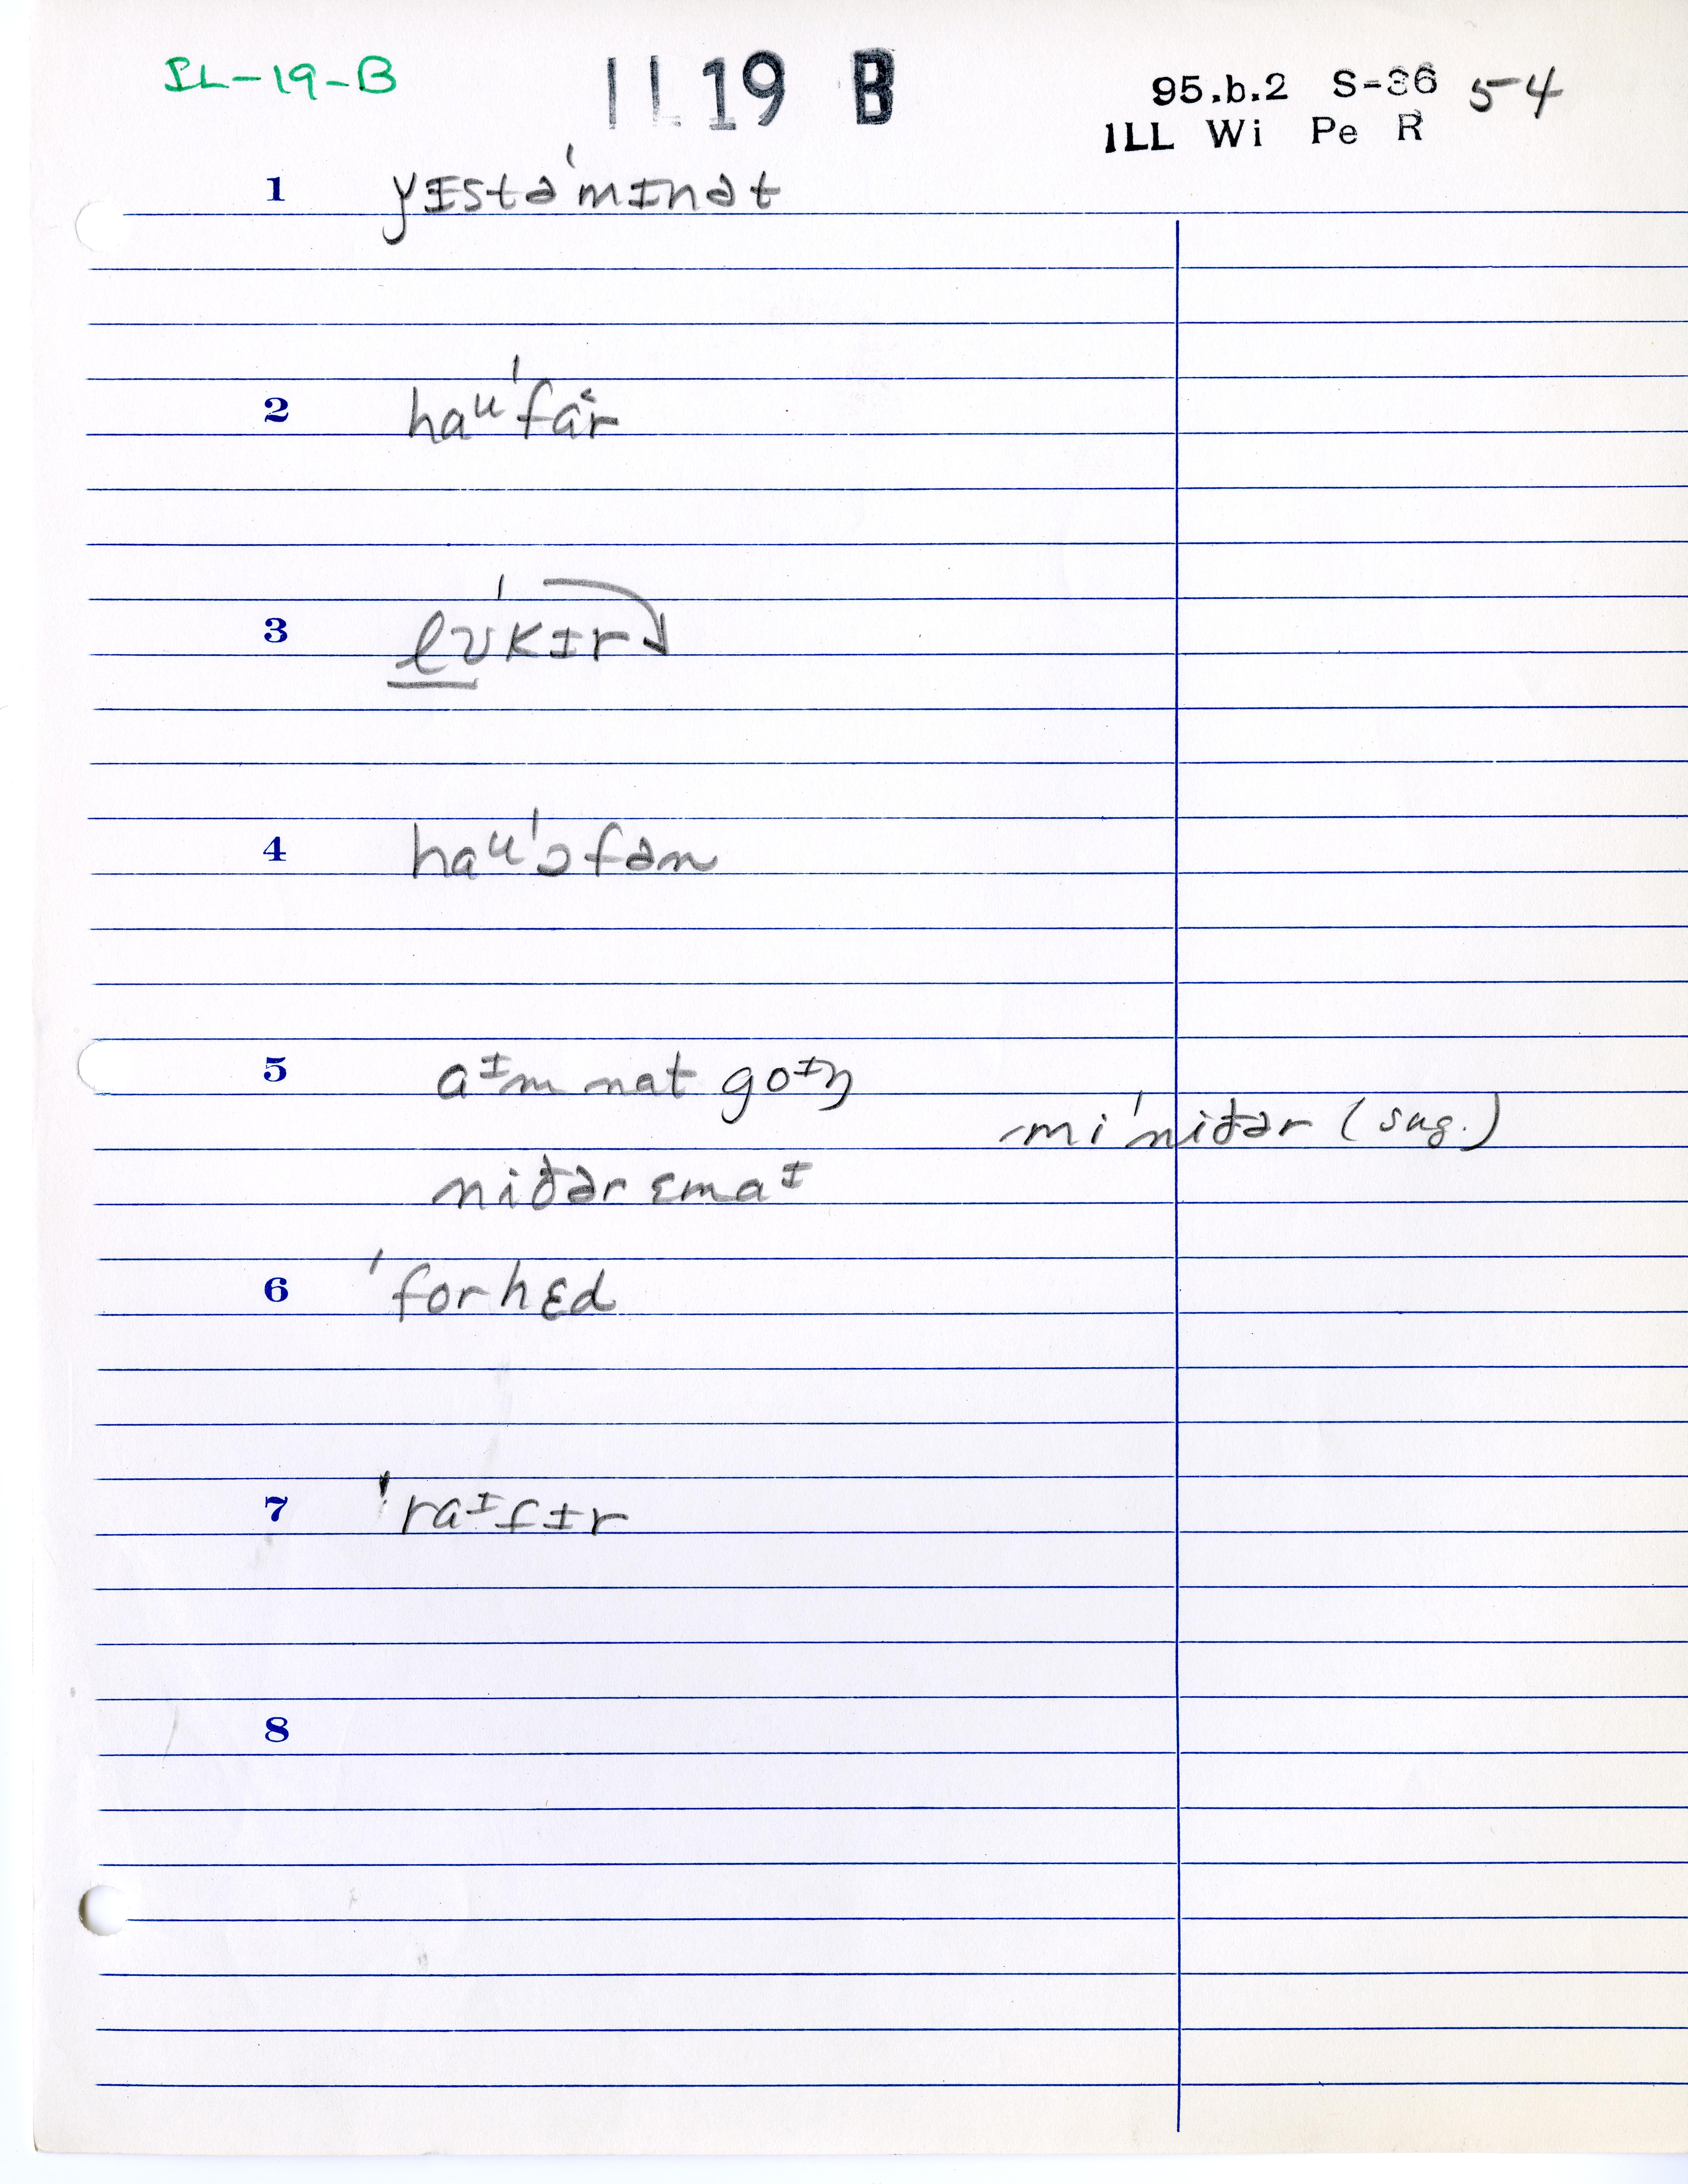 IL-19-B
IL 19 B
95.b.2 S-36 54
ILL Wi Pe R
1 yɪstəˈmɪnət
2 haᵘˈfɑr
3 lʊˈkɪr
4 haᵘˈɔfən
5 aᶦm nat goᶦŋ
miˈniðər (sug.)
niðər ɛmaᶦ
6 ˈforhɛd
7 ˈraᶦtɪr
8